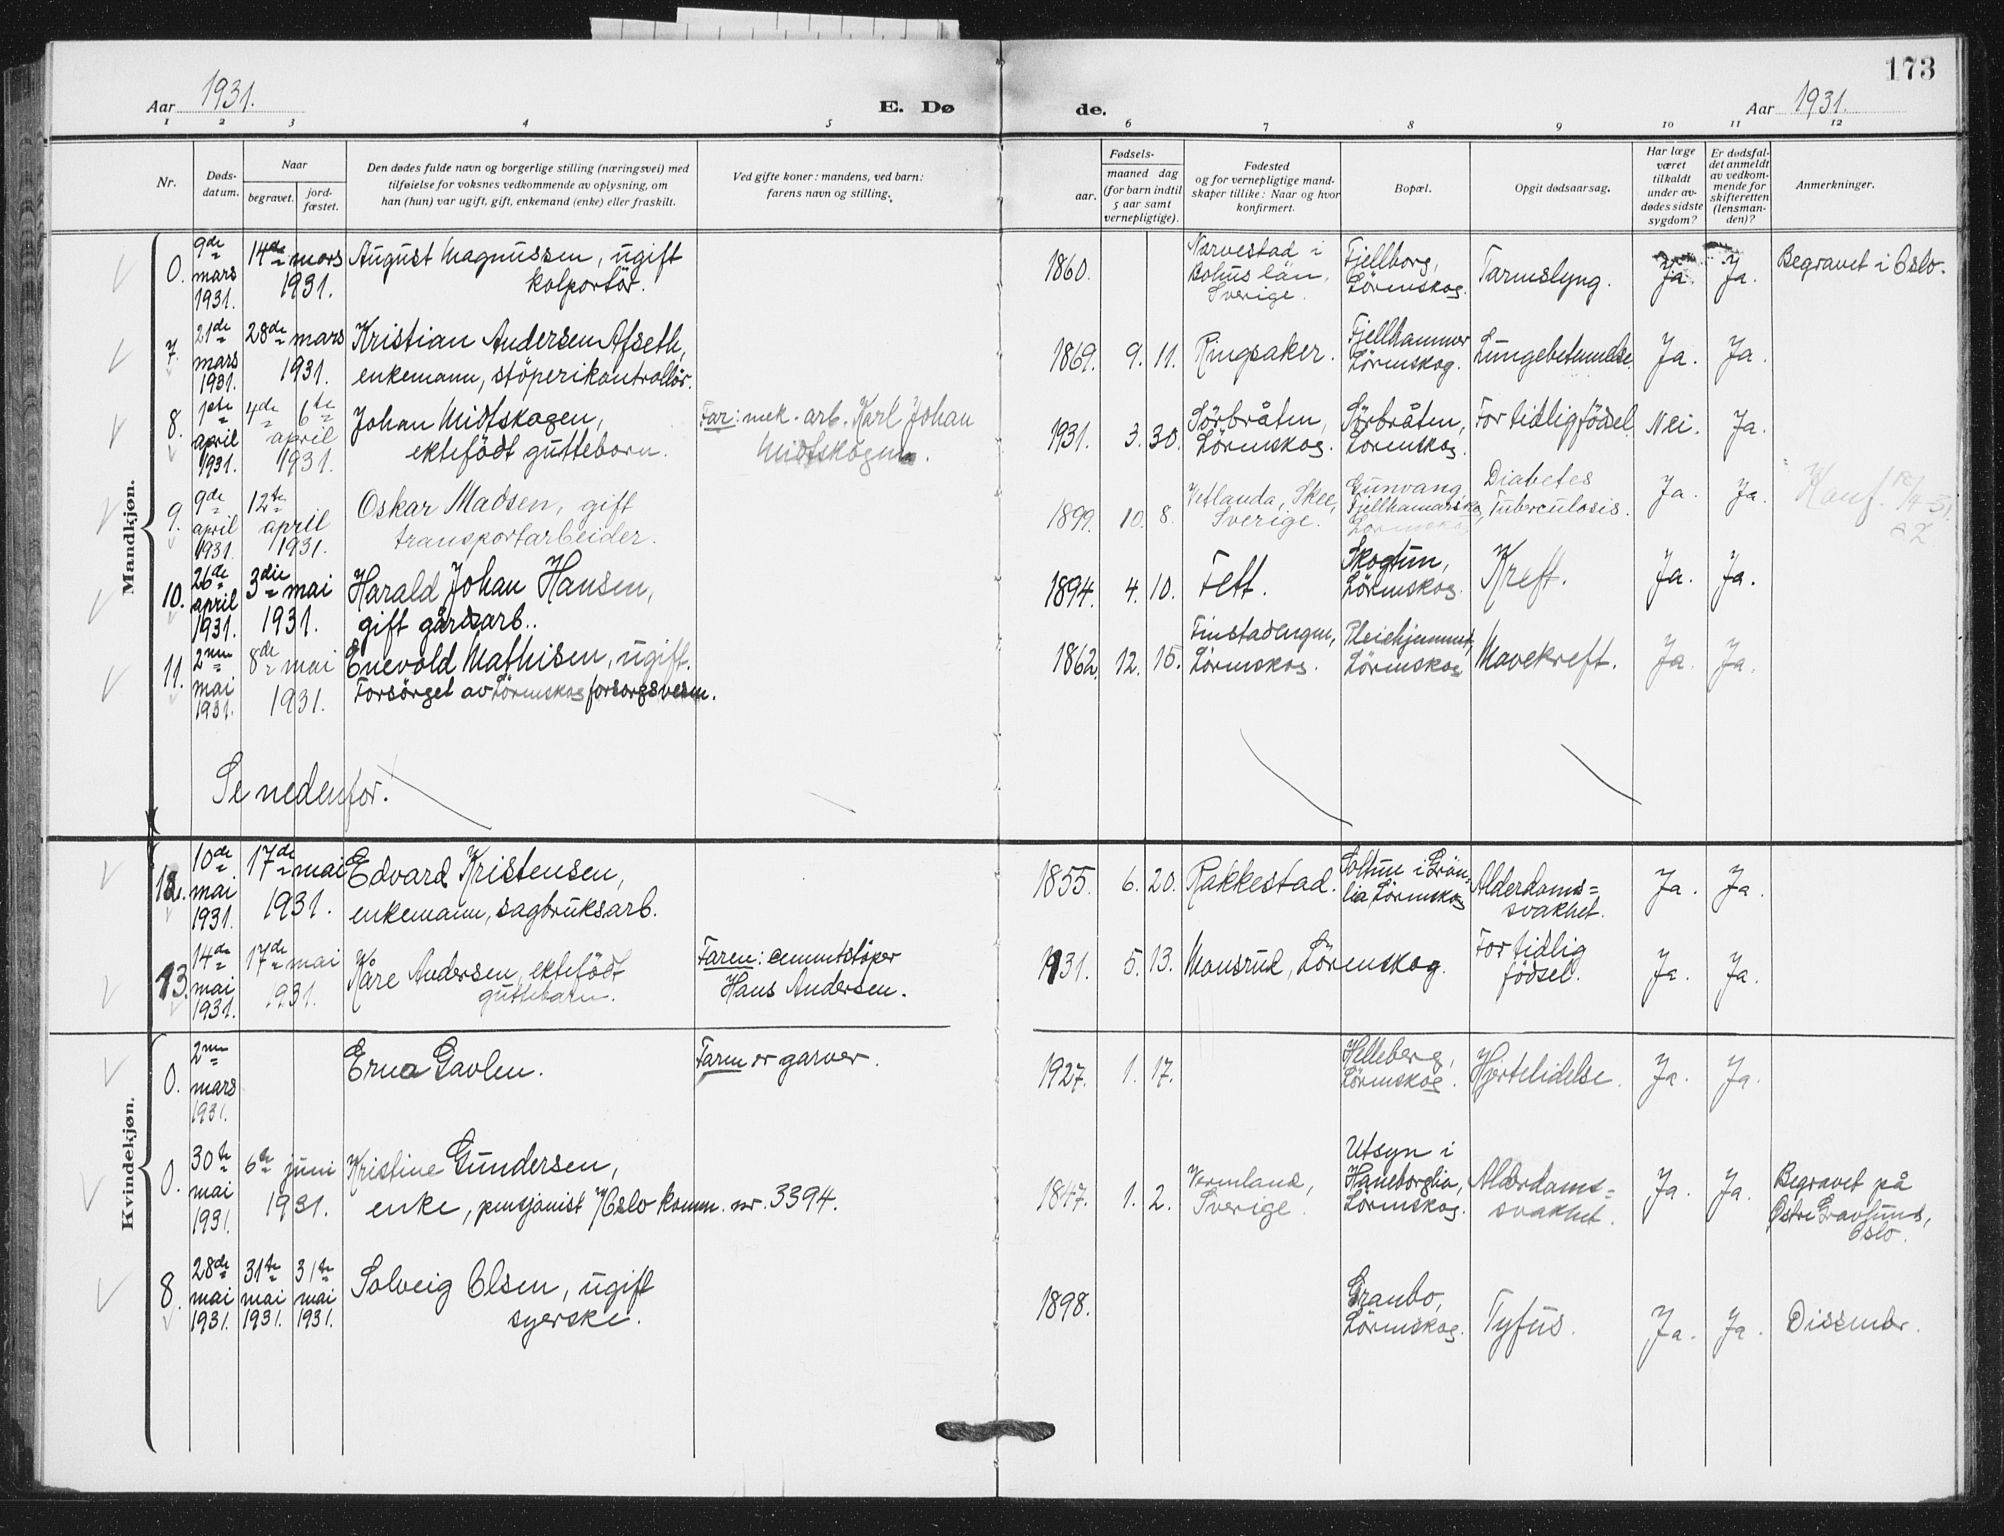 173
Aar 1931.
E. Dø
de.
Aar 1931.
1 2 3 4 5 6 7 8 9 10 11 12
Nr.
Døds-
datum.
Naar
begravet.
jord-
fæstet.
Den dødes fulde navn og borgerlige stilling (næringsvei) med
tilføielse for voksnes vedkommende av oplysning, om
han (hun) var ugift, gift, enkemand (enke) eller fraskilt.
Ved gifte koner: mandens, ved barn:
farens navn og stilling.
Fødsels-
aar.
maaned dag
(for barn indtil
5 aar samt
vernepligtige).
Fødested
og for vernepligtige mand-
skaper tillike: Naar og hvor
konfirmert.
Bopæl.
Opgit dødsaarsag.
Har læge
været
tilkaldt
under av-
dødes sidste
sygdom?
Er dødsfal-
det anmeldt
av vedkom-
mende for
skifteretten
(lensman-
den)?
Anmerkninger.
Mandkjøn.
0. 9de mars 1931. 14de mars 1931. August Magnussen, ugift
kolportör.
1860. Narvestad i
Bohus län,
Sverige.
Fjellborg,
Lörenskog.
Tarmslyng. Ja. Ja. Begravet i Oslo.
7. 21de mars 1931. 28de mars 1931. Kristian Andersen Afseth,
enkemann, stöperikontrollör.
1869. 9. 11. Ringsaker. Fjellhammer
Lörenskog.
Lungebetendelse. Ja. Ja.
8. 1ste april 1931. 4de 6te april 1931. Johan Midtskogen,
ektefödt guttebarn.
Far: mek. arb. Karl Johan
Midtskogen.
1931. 3. 30. Sörbråten,
Lörenskog.
Sörbråten,
Lörenskog.
For tidlig födsel. Nei. Ja.
9. 9de april 1931. 12te april 1931. Oskar Madsen, gift
transportarbeider.
1899. 10. 8. Vetlanda, Skee,
Sverige.
Gunvang,
Lörenskog
Diabetes
Tuberculosis. Ja. Ja.
10. 26de april 1931. 3die mai 1931. Harald Johan Hansen,
gift gårdsarb..
1894. 4. 10. Fett. Skogtun,
Lörenskog.
Kreft. Ja. Ja.
11. 2nen mai 1931. 8de mai 1931. Enevold Mathisen, ugift.
Forsörget av Lörenskog forsorgsvesen.
1862. 12. 15. Finstadengen,
Lörenskog.
Pleiehjemmet,
Lörenskog
Mavekreft. Ja. Ja.
Se nedenfor.
12. 10de mai 1931. 17de mai 1931. Edvard Kristensen,
enkemann, sagbruksarb.
1855. 6. 20. Rakkestad. Soltun i Grön-
lia, Lörenskog
Alderdoms=
svakhet. Ja. Ja.
13. 14de mai 1931. 17de mai 1931. Kåre Andersen, ektefödt
guttebarn.
Faren: cementstöper
Hans Andersen.
1931. 5. 13. Monsrud, Lörenskog. For tidlig
födsel. Ja. Ja.
Kvindekjøn.
0. 2nen mars 1931. Erna Gavlen. Faren er garver.
1927. 1. 17. Helleberg,
Lörenskog.
Hjertelidelse. Ja. Ja.
0. 30te mai 1931. 6te juni 1931. Kristine Gundersen,
enke, pensjonist i/Oslo komm. nr. 3394.
1847. 1. 2. Vermland,
Sverige.
Utsyn i
Haneborglia,
Lörenskog.
Alderdoms=
svakhet. Ja. Ja. Begravet på
Östre Gravlund,
Oslo.
8. 28de mai 1931. 31te mai 1931. 31te mai 1931. Solveig Olsen, ugift
syerske.
1898. Granbo,
Lörenskog.
Tyfus. Ja. Ja. Dissenter.